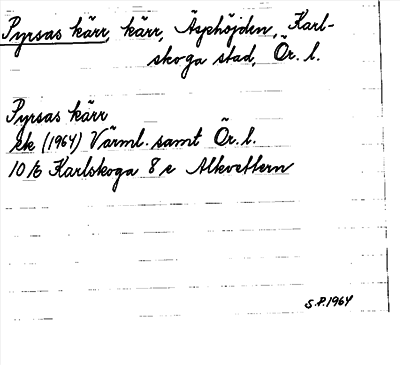 Pyrsas kärr, kärr, Äsphöjden, Karl-
skoga stad, Ör. l.
Pyrsas kärr
ek (1964) Värml. samt Ör. l.
10 Karlskoga 8 e Alkvettern
S.P. 1964